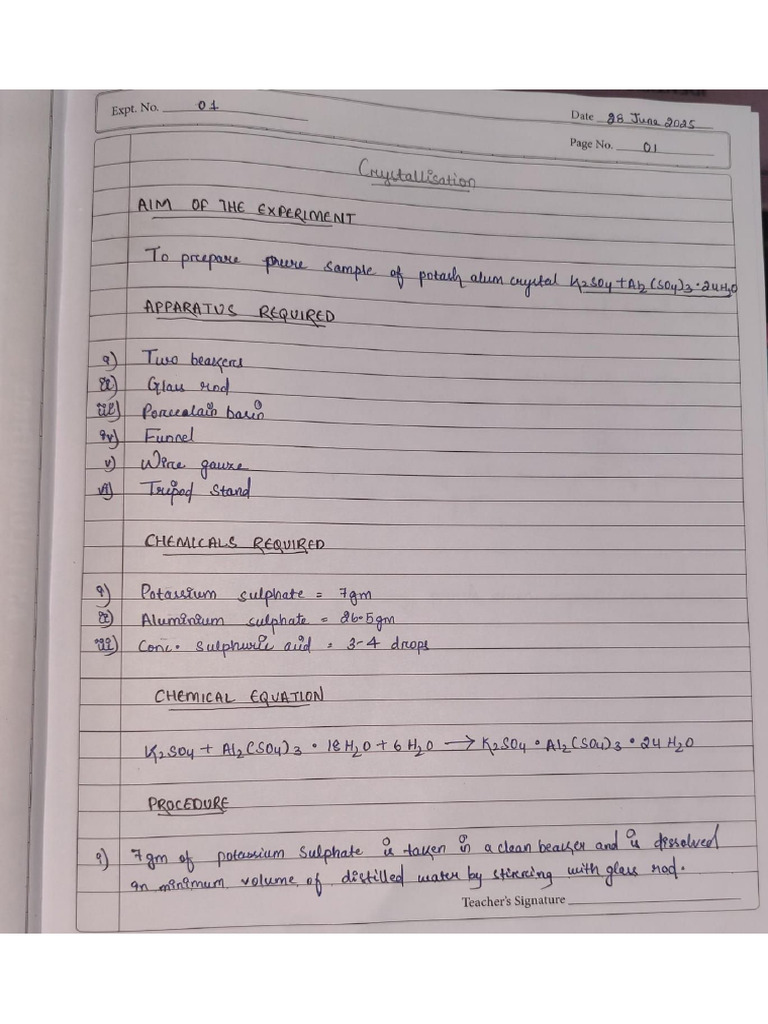 Expt. No. 01
Date 28 June 2025
Page No. 01
Crystallisation
AIM OF THE EXPERIMENT
To prepare pure sample of potash alum crystal K2SO4+Al2(SO4)3·24H2O
APPARATUS REQUIRED
i) Two beakers
ii) Glass rod
iii) Porcealain basin
iv) Funnel
v) Wire gauze
vi) Tripod stand
CHEMICALS REQUIRED
i) Potassium sulphate = 7gm
ii) Aluminium sulphate = 26.5gm
iii) Conc. sulphuric acid = 3-4 drops
CHEMICAL EQUATION
K2SO4 + Al2(SO4)3 · 18H2O + 6H2O → K2SO4 · Al2(SO4)3 · 24H2O
PROCEDURE
i) 7gm of potassium sulphate is taken in a clean beaker and is dissolved
in minimum volume of distilled water by stirring with glass rod.
Teacher's Signature